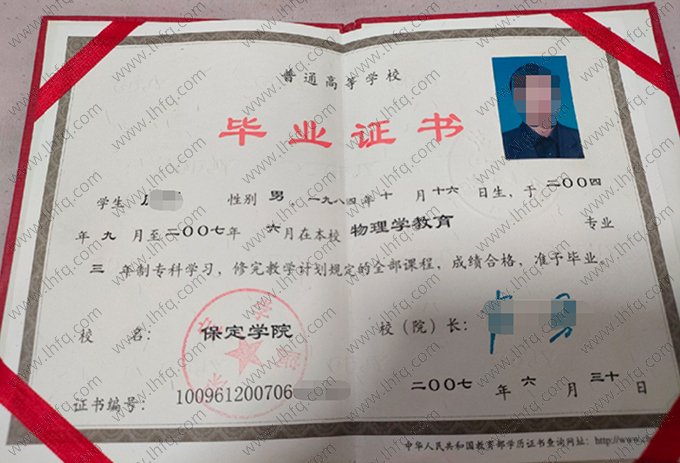 普通高等学校
毕业证书
学生 性别 男，一九八四年 十 月 十六 日生，于 二〇〇四
年 九 月至 二〇〇七 年 六 月在本校 物理学教育 专业
三 年制专科学习，修完教学计划规定的全部课程，成绩合格，准予毕业。
校 名： 保定学院 校（院）长：
二〇〇七 年 六 月 三十 日
证书编号： 100961200706
中华人民共和国教育部学历证书查询网址：http://www.
www.lhfq.com